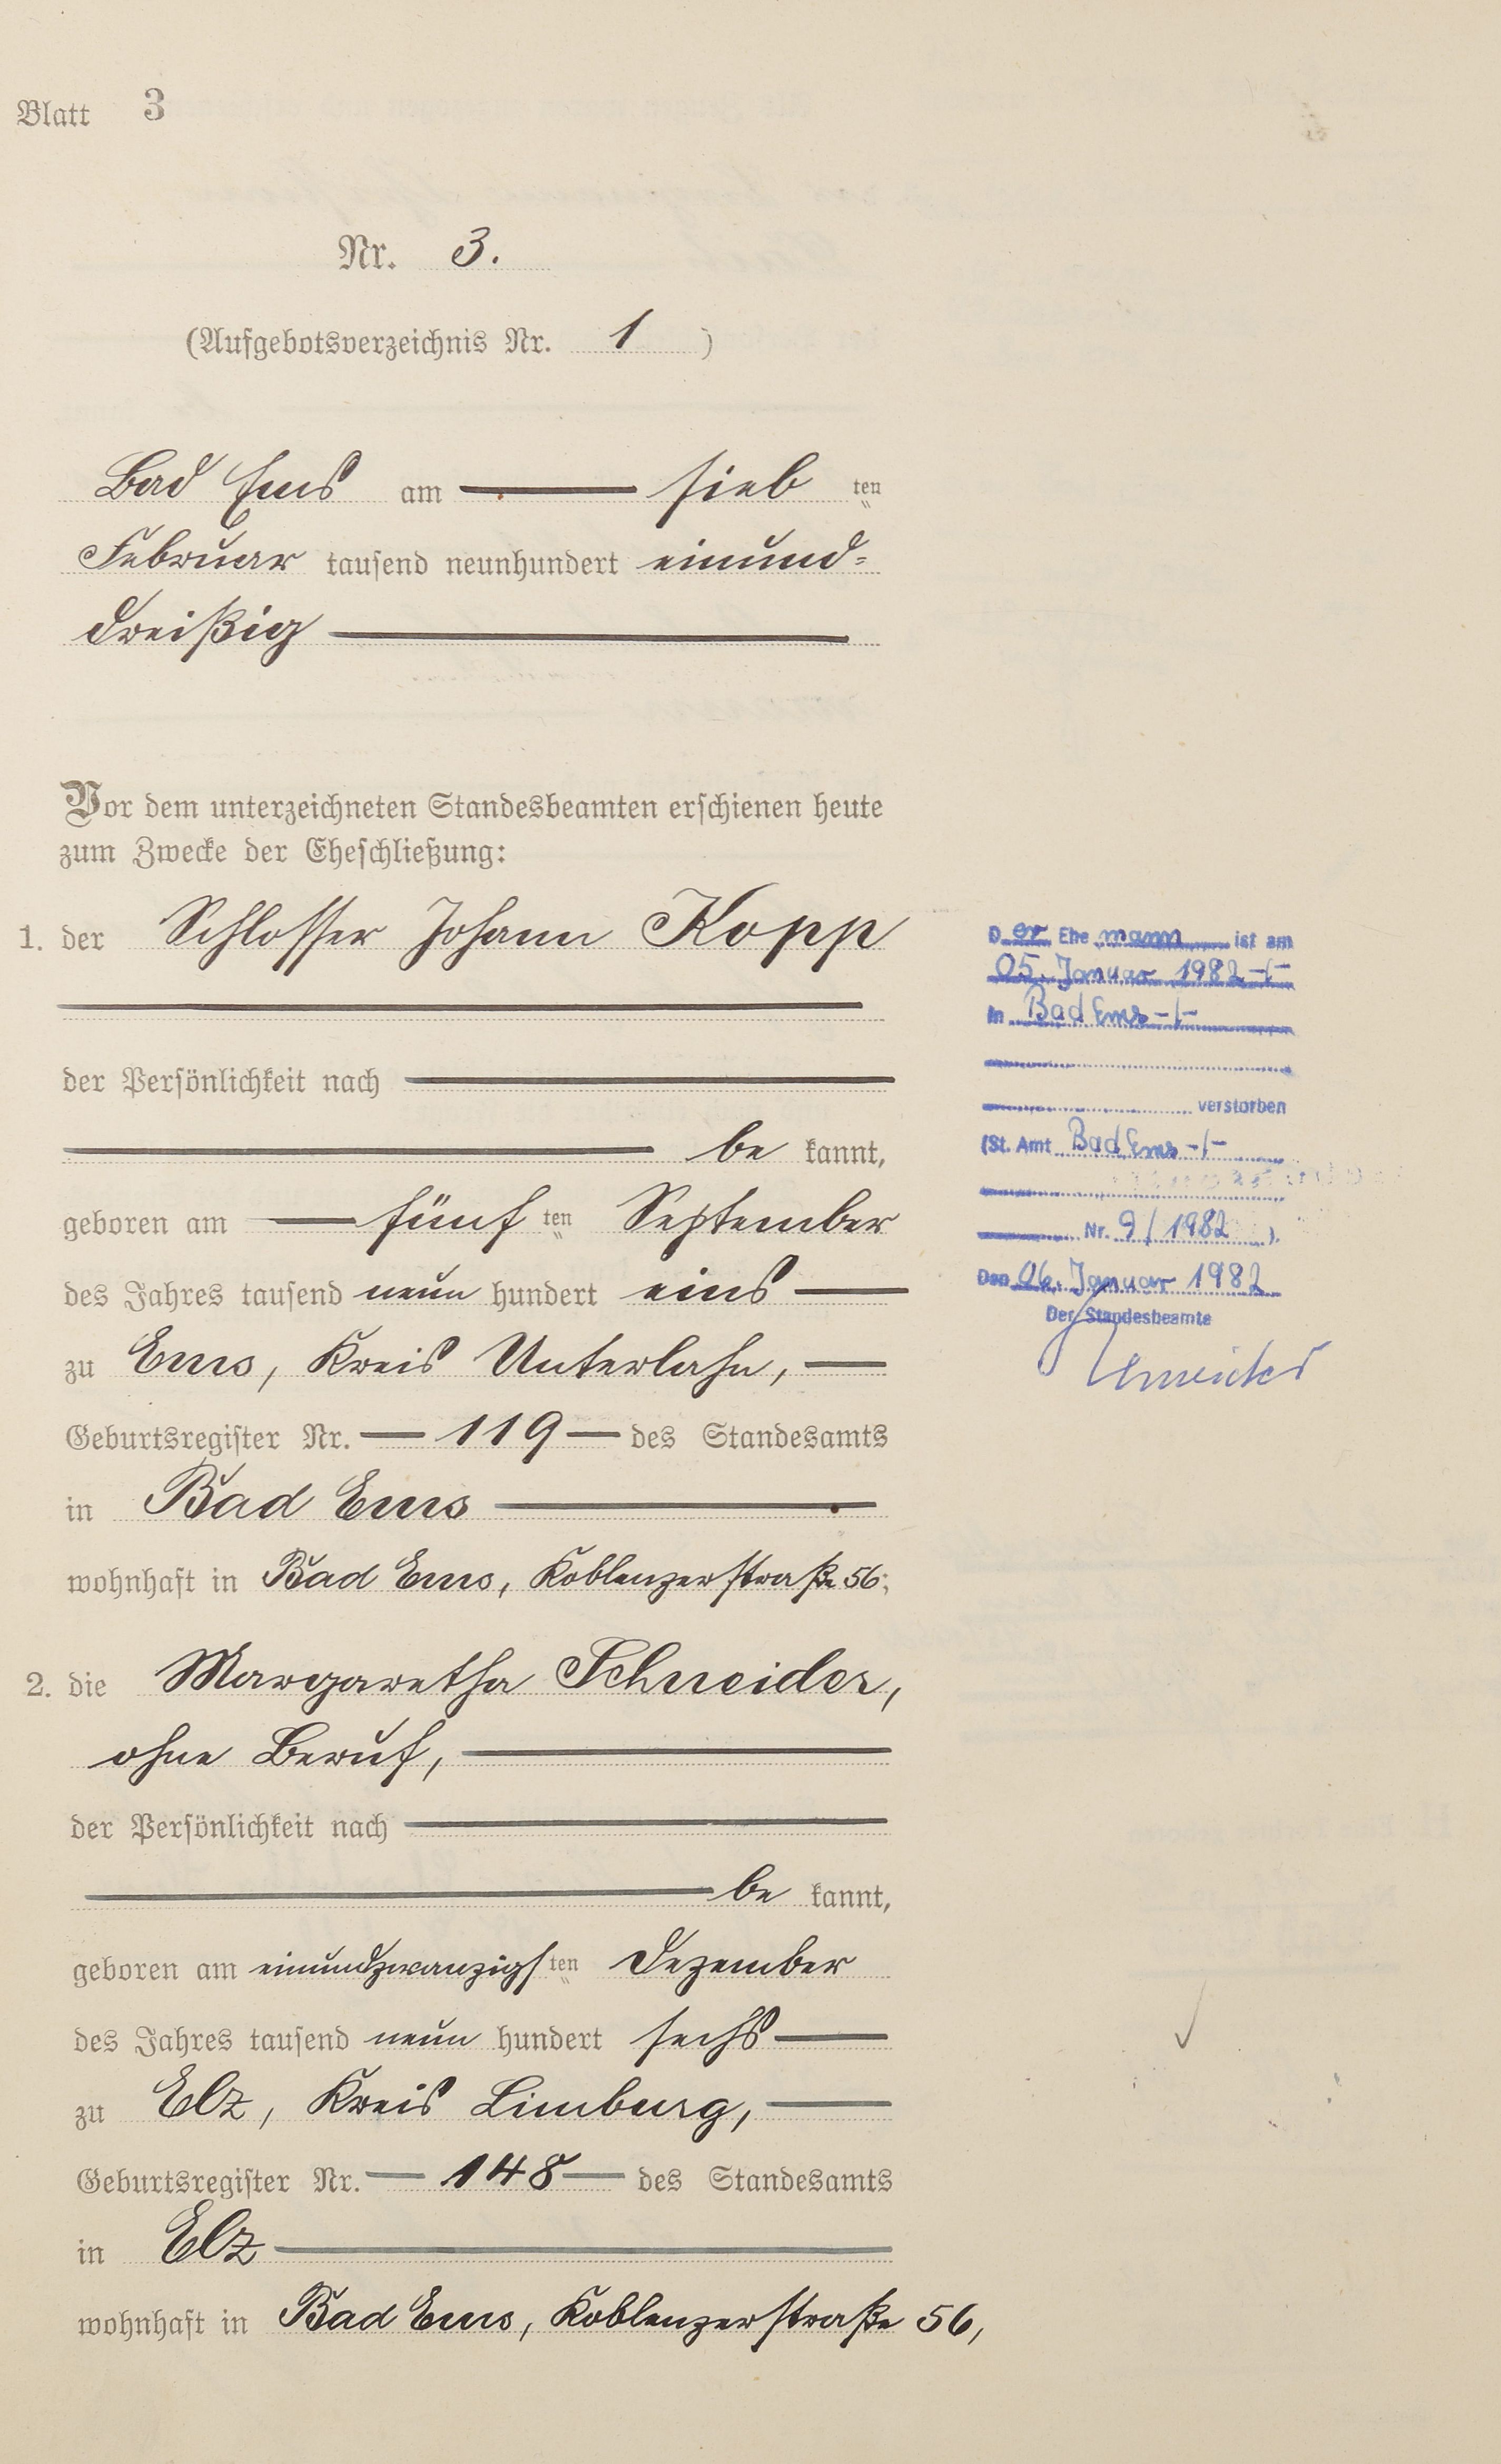 Blatt 3
Nr. 3.
(Aufgebotsverzeichnis Nr. 1 )
Bad Ems am sieb ten
Februar tausend neunhundert einund=
dreißig
Vor dem unterzeichneten Standesbeamten erschienen heute
zum Zwecke der Eheschließung:
1. der Schlosser Johann Kopp
der Persönlichkeit nach
be kannt,
geboren am fünf ten September
des Jahres tausend neun hundert eins
zu Ems, Kreis Unterlahn,
Geburtsregister Nr. 119 des Standesamts
in Bad Ems
wohnhaft in Bad Ems, Koblenzerstraße 56;
2. die Margaretha Schneider,
ohne Beruf,
der Persönlichkeit nach
be kannt,
geboren am einundzwanzigs ten Dezember
des Jahres tausend neun hundert sechs
zu Elz, Kreis Limburg,
Geburtsregister Nr. 148 des Standesamts
in Elz
wohnhaft in Bad Ems, Koblenzerstraße 56,
Der Ehe mann ist am
05. Januar 1982 -/-
in Bad Ems -/-
verstorben
(St. Amt Bad Ems -/-
Nr. 9/1982 ).
Den 06. Januar 1982
Der Standesbeamte